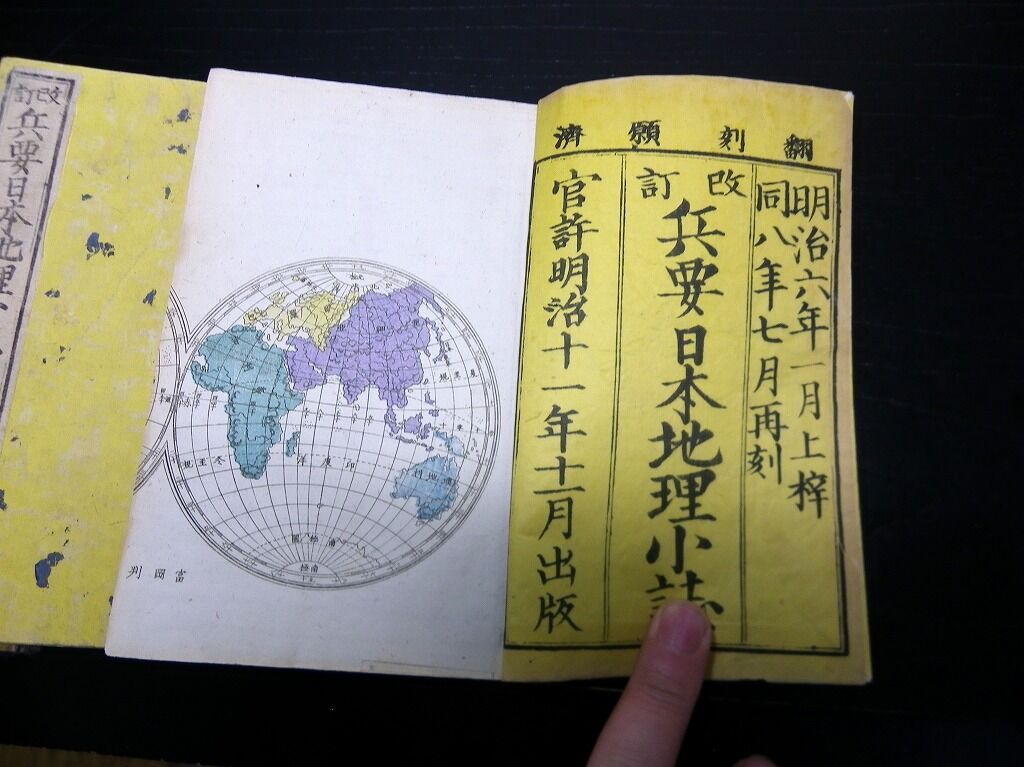 翻刻願濟
明治六年一月上梓
同八年七月再刻
改訂
兵要日本地理小誌
官許明治十一年十二月出版
改訂
兵要日本地理小
印度洋
冬至規
南極圏
南極
富岡刋